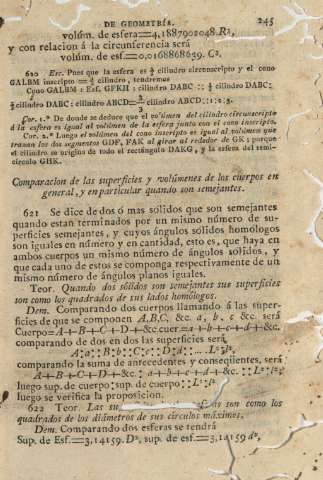 DE GEOMETRÍA. 245
volúm. de esfera=4,1887902048.R³,
y con relacion á la circunferencia será
volúm. de esf.=0,0168868639.C³.
620 Esc. Pues que la esfera es ⅔ cilindro circunscripto y el cono
GALBM inscripto = ⅓ cilindro, tendremos
Cono GALBM : Esf. GFKH : cilindro DABC :: ⅓ cilindro DABC:
⅔ cilindro DABC: cilindro ABCD=3/3 cilindro ABCD.::1:2:3.
Cor. 1.º De donde se deduce que el volúmen del cilindro circunscripto
á la esfera es igual al volúmen de la esfera junto con el cono inscripto.
Cor. 2.º Luego el volúmen del cono inscripto es igual al volúmen que
trazan los dos segmentos GDF, FAK al girar al rededor de GK; porque
el cilindro se origina de todo el rectángulo DAKG, y la esfera del semi-
círculo GHK.
Comparacion de las superficies y volúmenes de los cuerpos en
general, y en particular quando son semejantes.
621 Se dice de dos ó mas sólidos que son semejantes
quando estan terminados por un mismo número de su-
perficies semejantes, y cuyos ángulos sólidos homólogos
son iguales en número y en cantidad, esto es, que haya en
ambos cuerpos un mismo número de ángulos sólidos, y
que cada uno de estos se componga respectivamente de un
mismo número de ángulos planos iguales.
Teor. Quando dos sólidos son semejantes sus superficies
son como los quadrados de sus lados homólogos.
Dem. Comparando dos cuerpos llamando á las super-
ficies de que se componen A,B,C, &c. a, b, c &c. será
Cuerpo=A+B+C+D+&c.cuer=a+b+c+d+&c.
comparando de dos en dos las superficies será
A:a::B:b::C:c::D:d::...L²:l²,
comparando la suma de antecedentes y conseqüentes, será
A+B+C+D+&c. : a+b+c+d+&c. ::L²:l²;
luego sup. de cuerpo:sup. de cuerpo::L²:l²
luego se verifica la proposicion.
622 Teor. Las su son como los
quadrados de los diámetros de sus círculos máximos.
Dem. Comparando dos esferas se tendrá
Sup. de Esf.=3,14159.D², sup. de esf.=3,14159 d²,